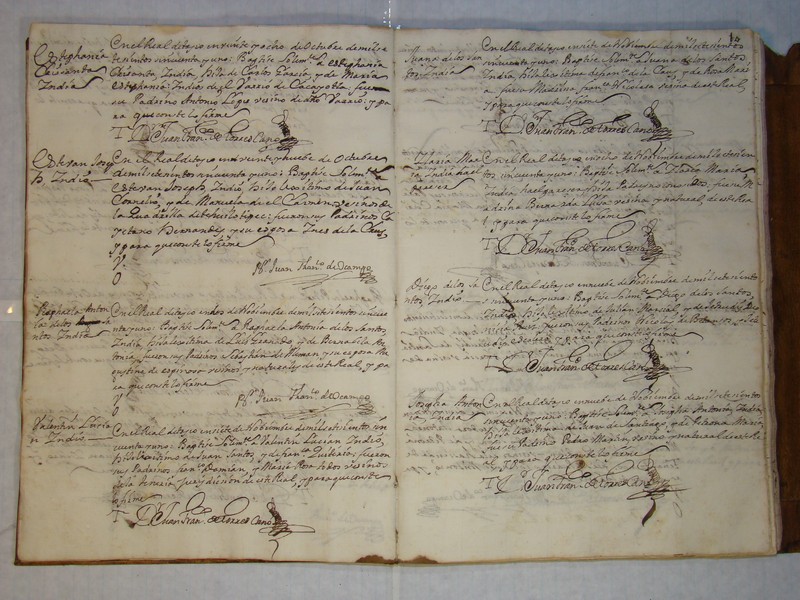 Estephania
Crisanta
India
En el Real de tayo en veinte y ocho de Octubre de mil sete
cientos sinquenta y uno: Baptize Solemte. a Estephania
Crisanta, India, hija de Carlos Garcia, y de Maria
Estephania: Indios de el Varrio de Cacayotla: fue
su Padrino Antonio Lopes vesino de dho Varrio, y pa
ra que conste lo firme
D. Juan Fran. de Torres Cano
Estevan Jose
ph, Indio
En el Real de tayo en veinte y nuebe de Octubre
de mil setesientos sinquenta y uno: Baptize Solemte. a
Estevan Joseph, Indio, hijo lexitimo de Juan
Cornelio, y de Manuela de el Carmen, vesinos de
la Quadrilla de : fueron sus Padrinos Ca
yetano Hernandez, y su esposa Ines de la Cruz,
y para que conste lo firme
V.
O
Br. Juan Than.o de Ocampo
Raphaela Anton
ia de los Sa
ntos India
En el Real de tayo en dos de Nobiembre de mil setesientos sinque
nta y uno: Baptize Solemte. a Raphaela Antonia de los Santos,
India hija lexitima de Luis , y de Bernarda An
tonia, fueron sus Padrinos Sebastian de Human, y su esposa Au
gustina de espinosa vesinos y naturales de este Real, y pa
ra que conste lo firme
V
O
Br. Juan Than.o de Ocampo
Valentin Lucia
n Indio
En el Real de tayo en siete de Nobiembre de mil setesientos sin
quenta y uno: Baptize Solemte. a Valentin Lucian Indio,
hijo lexitimo de Juan Santos, y de Fran.ca , fueron
sus Padrinos Fran.co Damian, y Maria todos vesinos
de la jurisdicion de este Real, y para que conste
lo firme
D. Juan Fran. de Torres Cano
Juana de los San
tos, India
En el Real de tayo en siete de Nobiembre de mil setesientos
sinquenta y uno: Baptize Solemte. a Juana de los Santos
India, hija lexitima de Fran.co de la Cruz, y de Rosa Maria
fue su Madrina, Fran.ca Nicolasa vesina de este Real,
y para que conste lo firme
D. Juan Fran. de Torres Cano
Maria
India
En el Real de tayo en ocho de Nobiembre de mil setesien
tos sinquenta y uno: Baptize Solemte. a Maria
India, hija de Padres no conosidos, fue su Ma
drina Bernarda Luisa vesina y natural de este Rea
l, y para que conste lo firme
D. Juan Fran. de Torres Cano
Diego de los Sa
ntos Indio
En el Real de tayo en nuebe de Nobiembre de mil setesientos
sinquenta y uno: Baptize Solemte. a Diego de los Santos,
Indio, hijo lexitimo de Julian Marcial, y de
fueron sus Padrinos
y para que conste lo firme
D. Juan Fran. de Torres Cano
Josepha Anton
ia, India
En el Real de tayo en nuebe de Nobiembre de mil setesientos
sinquenta y uno: Baptize Solemte. a Josepha Antonia, India,
hija lexitima de de Santiago, y de Petrona Maria,
fue su Padrino Pedro Martin, vesino y natural de este Re
al, y para que conste lo firme
D. Juan Fran. de Torres Cano